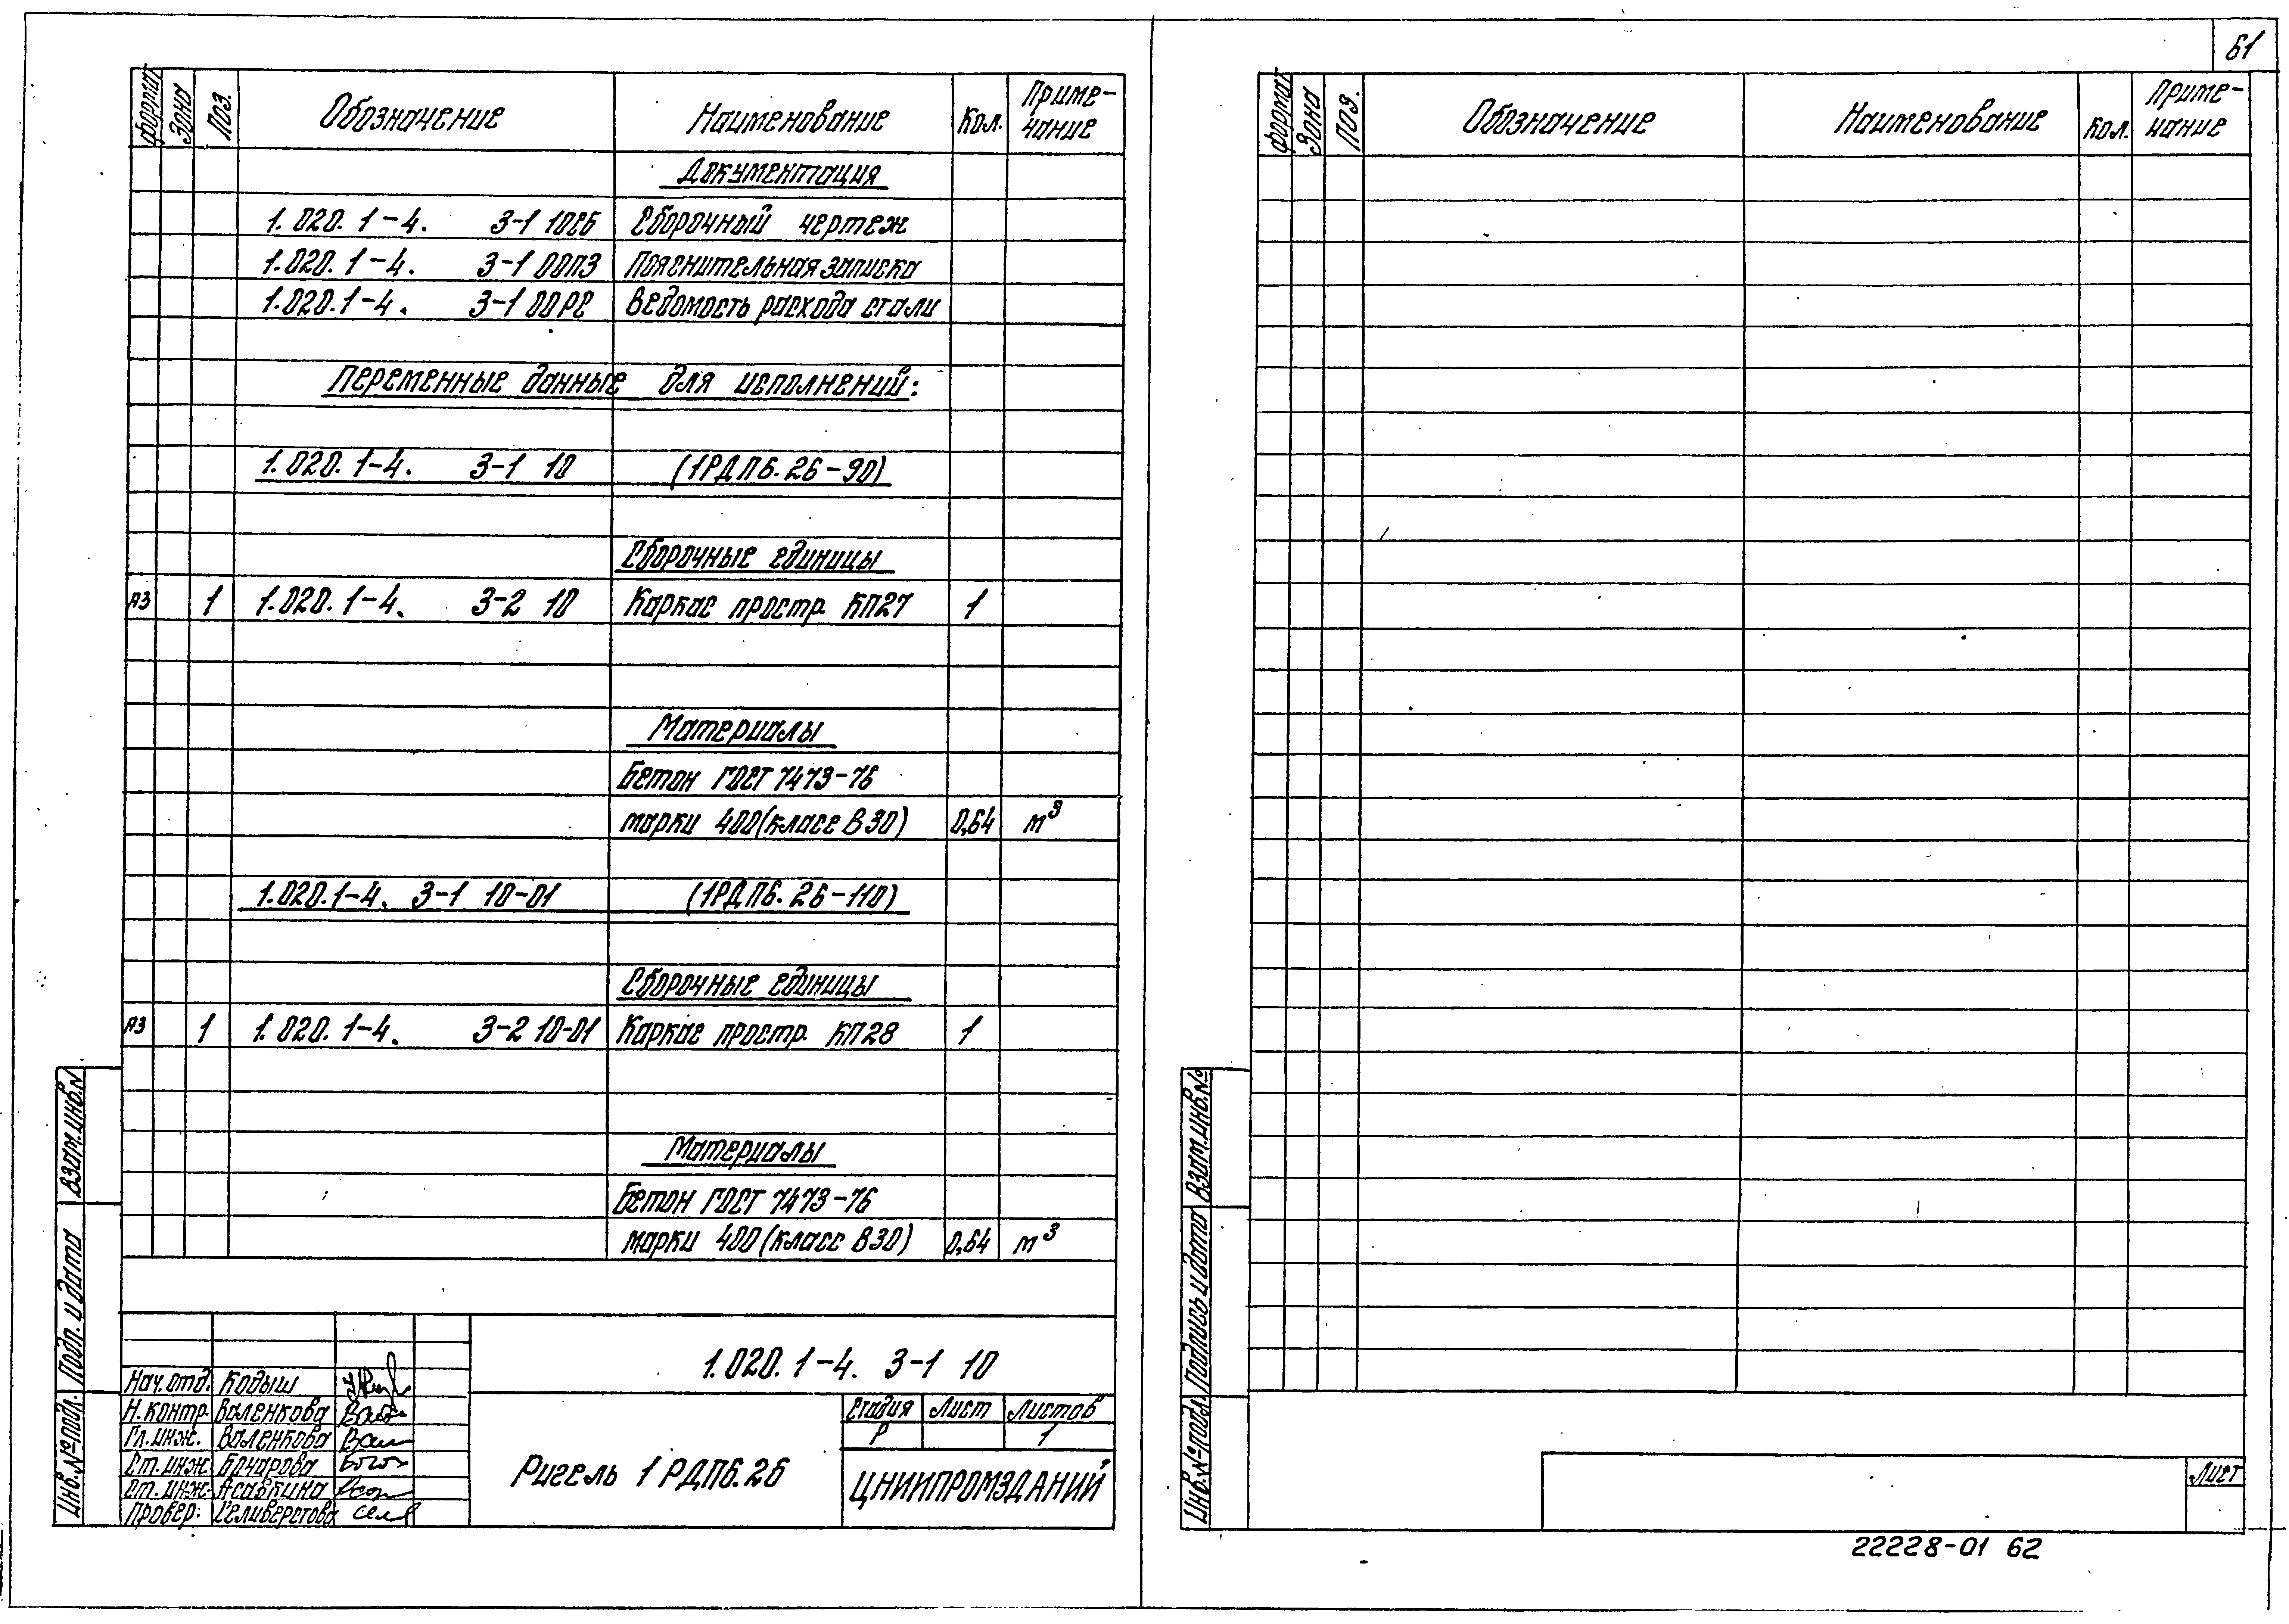 61
Формат Зона Поз. Обозначение Наименование Кол. Приме-
чание
Документация
1.020.1-4. 3-1 10СБ Сборочный чертеж
1.020.1-4. 3-1 00ПЗ Пояснительная записка
1.020.1-4. 3-1 00РС Ведомость расхода стали
Переменные данные для исполнений:
1.020.1-4. 3-1 10 (1РДП6.26-90)
Сборочные единицы
А3 1 1.020.1-4. 3-2 10 Каркас простр. КП27 1
Материалы
Бетон ГОСТ 7473-76
марки 400(класс В30) 0,64 м³
1.020.1-4. 3-1 10-01 (1РДП6.26-110)
Сборочные единицы
А3 1 1.020.1-4. 3-2 10-01 Каркас простр. КП28 1
Материалы
Бетон ГОСТ 7473-76
марки 400(класс В30) 0,64 м³
Взам.инв.№
Подп. и дата
Инв.№подл.
1.020.1-4. 3-1 10
Нач.отд. Кодыш
Н.контр. Валенкова
Гл.инж. Валенкова
Ст.инж. Бочарова
Ст.инж. Асаёкина
Провер. Селиверстова
Ригель 1РДП6.26
Стадия Лист Листов
Р 1
ЦНИИПРОМЗДАНИЙ
Формат Зона Поз. Обозначение Наименование Кол. Приме-
чание
Взам.инв.№
Подпись и дата
Инв.№подл.
Лист
22228-01 62